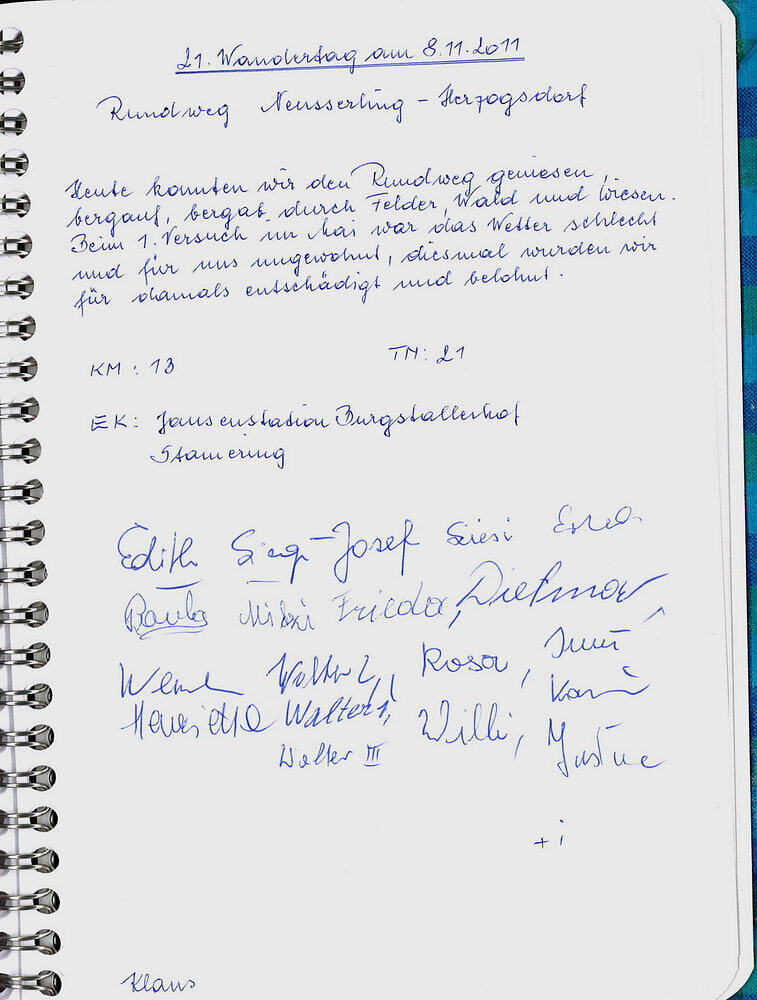 21. Wandertag am 8.11.2011
Rundweg Neusserling - Herzogsdorf
Heute konnten wir den Rundweg geniesen,
bergauf, bergab durch Felder, Wald und Wiesen.
Beim 1. Versuch im Mai war das Wetter schlecht
und für uns ungewohnt, diesmal wurden wir
für damals entschädigt und belohnt.
KM: 13 TN: 21
EK: Jausenstation Burgstallerhof
Stamering
Edith Josef Erna
Paula Mitzi Frieda, Dietmar,
Walter 2, Rosa,
Henriette Walter 1, Willi, Karin
Walter III Justine
+ i
Klaus